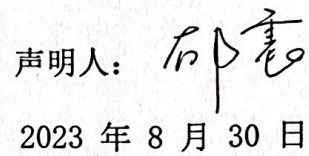 声明人：
2023 年 8 月 30 日